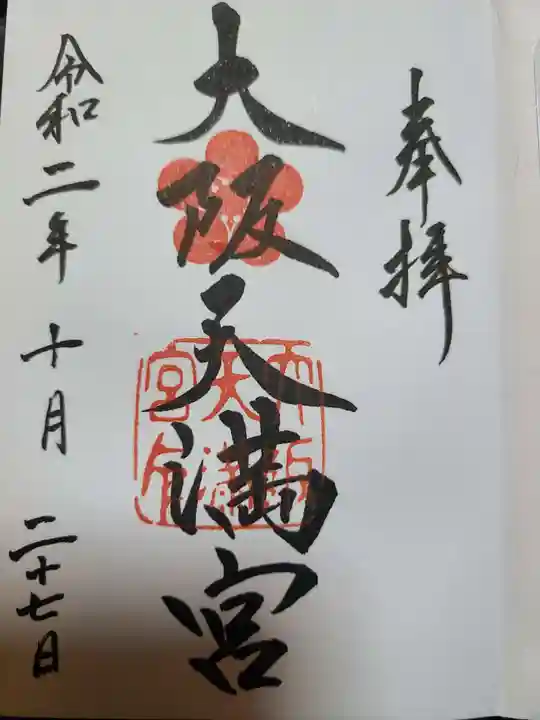 奉拝
大阪天満宮
大阪天満宮印
令和二年 十月 二十七日